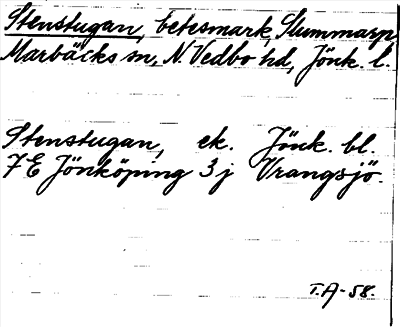 Stenstugan, betesmark, Slummarp,
Marbäcks sn, N. Vedbo hd, Jönk. l.
Stenstugan, ek. Jönk. bl.
7E Jönköping 3j Vrangsjö.
T.A-58.